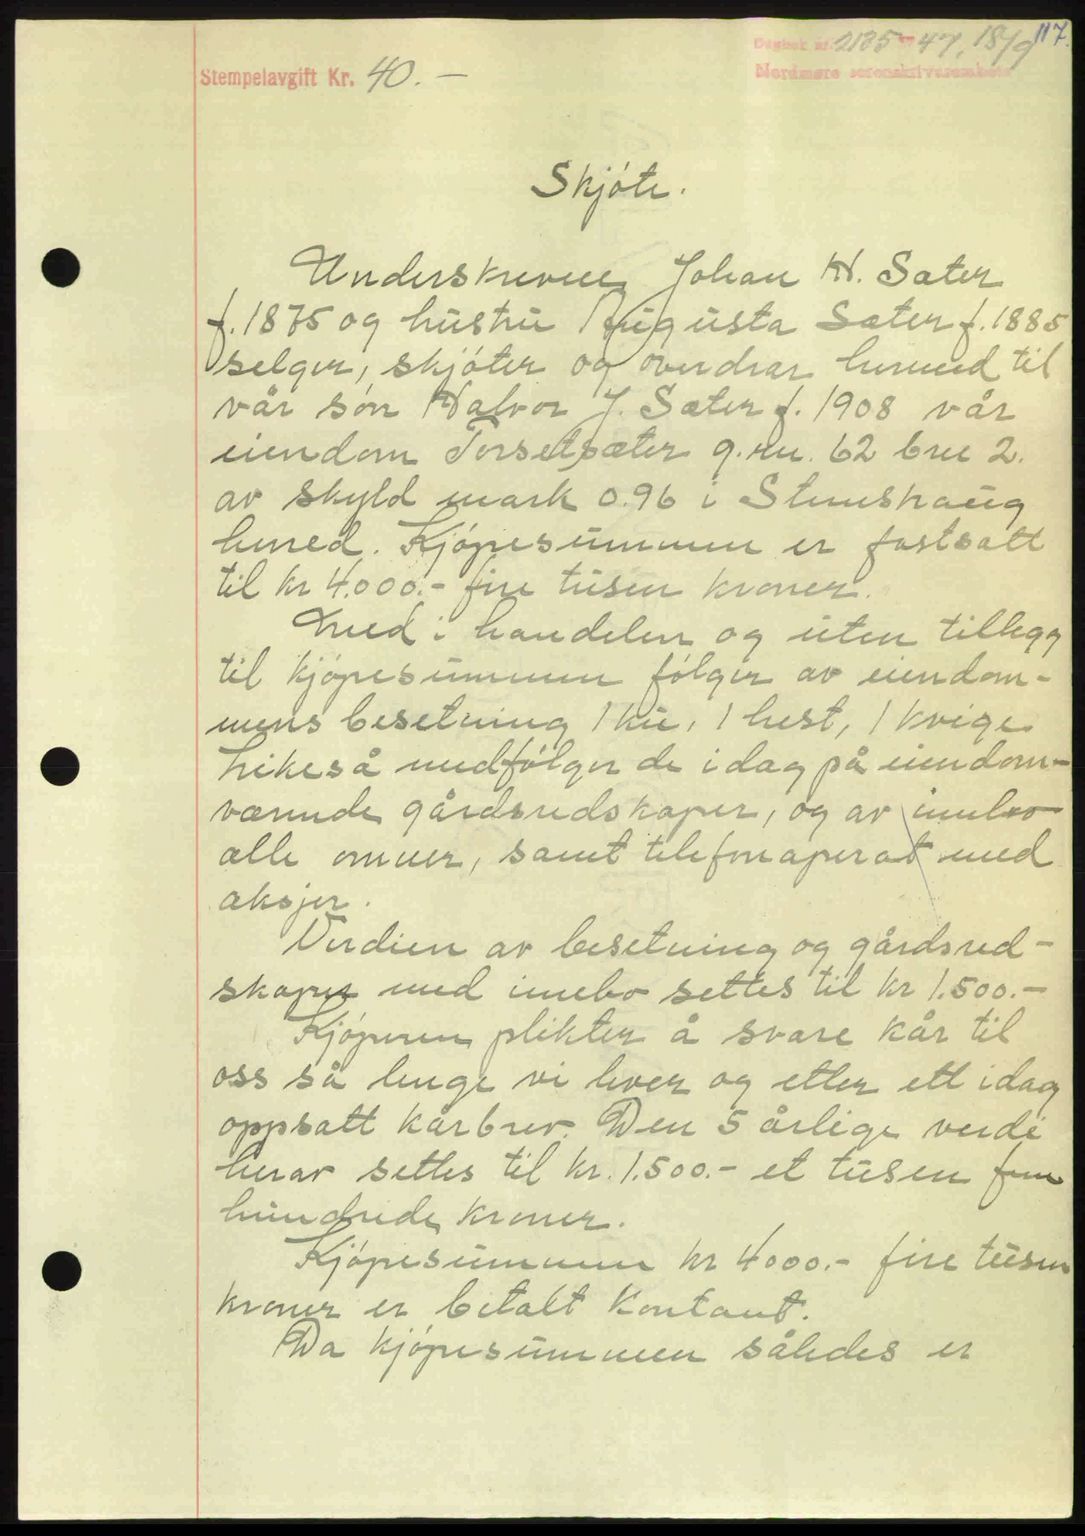 Dagbok nr. 2135 47, 18/9 117.
Stempelavgift Kr. 40.-
Nordmøre sorenskriverembete
Skjøte.
Underskrevne Johan H. Sæter
f. 1875 og hustru Augusta Sæter f. 1885
selger, skjøter og overdrar herved til
vår søn Halvor J. Sæter f. 1908 vår
eiendom Torsetsæter g.nr. 62 bnr 2.
av skyld mark 0.96 i Stemshaug
herred. Kjøpesummen er fastsatt
til kr 4.000.- fire tusen kroner.
Med i handelen og uten tillegg
til kjøpesummen følger av eiendom-
mens besetning 1 ku, 1 hest, 1 kvige
Likeså medfølger de idag på eiendom-
værende gårdsredskaper, og av innbo
alle omner, samt telefonaperat med
aksjer.
Verdien av besetning og gårdsred-
skaper med inebo settes til kr 1.500.-
Kjøperen plikter å svare kår til
oss så lenge vi lever og etter ett idag
oppsatt kårbrev. Den 5 årlige verdi
herav settes til kr. 1.500.- et tusen fem
hundrede kroner.
Kjøpesummen kr 4000.- fire tusen
kroner er betalt kontant.
Da kjøpesummen således er